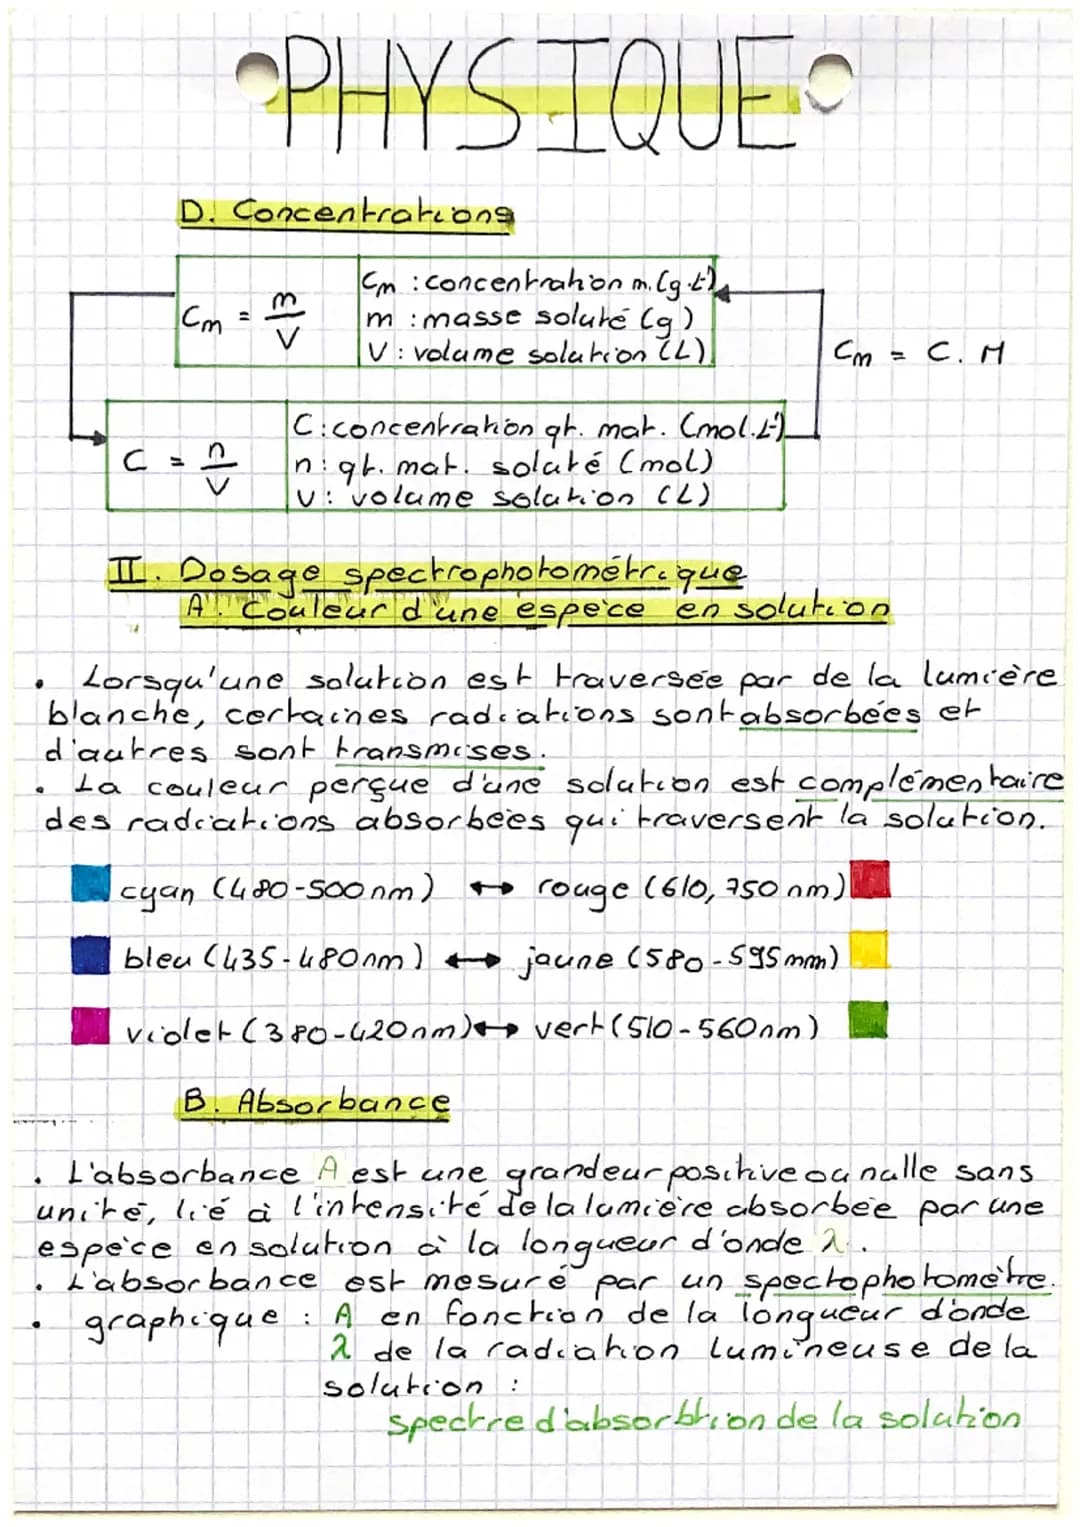 PHYSIQUE
D. Concentrations
Cm = m/V
Cm : concentration m. (g.L⁻¹)
m : masse soluté (g)
V : volume solution (L)
Cm = C. M
C = n/V
C : concentration qt. mat. (mol.L⁻¹)
n : qt. mat. soluté (mol)
V : volume solution (L)
II. Dosage spectrophotométrique
A. Couleur d'une espèce en solution
• Lorsqu'une solution est traversée par de la lumière
blanche, certaines radiations sont absorbées et
d'autres sont transmises.
• La couleur perçue d'une solution est complémentaire
des radiations absorbées qui traversent la solution.
cyan (480-500nm) ↔ rouge (610, 750 nm)
bleu (435-480nm) ↔ jaune (580-595mm)
violet (380-420nm) ↔ vert (510-560nm)
B. Absorbance
• L'absorbance A est une grandeur positive ou nulle sans
unité, lié à l'intensité de la lumière absorbée par une
espèce en solution à la longueur d'onde λ.
• L'absorbance est mesuré par un spectophotomètre.
• graphique : A en fonction de la longueur d'onde
λ de la radiation lumineuse de la
solution :
spectre d'absorbtion de la solution